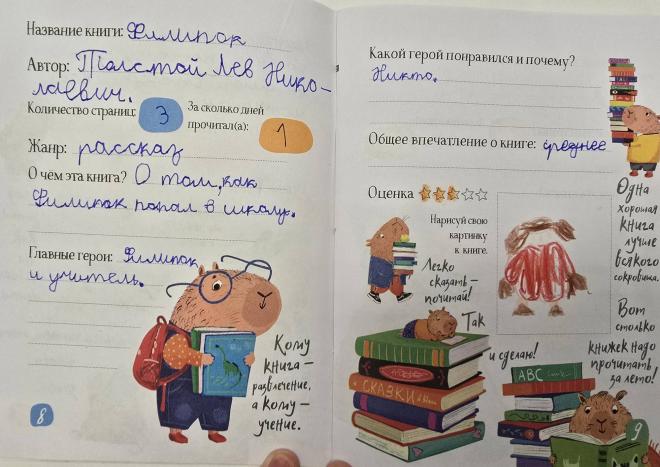 Название книги: Филипок
Автор: Толстой Лев Нико-
лаевич.
Количество страниц: 3 За сколько дней
прочитал(а): 1
Жанр: рассказ
О чём эта книга? О том, как
Филипок попал в школу.
Главные герои: Филипок
и учитель.
Кому
книга –
развлечение,
а кому –
учение.
8
Какой герой понравился и почему?
Никто.
Общее впечатление о книге: среднее
Оценка
Нарисуй свою
картинку
к книге.
Легко
сказать –
почитай!
Так
и сделаю!
Одна
хорошая
книга
лучше
всякого
сокровища.
Вот
столько
книжек надо
прочитать
за лето!
СКАЗКИ
ABC
9